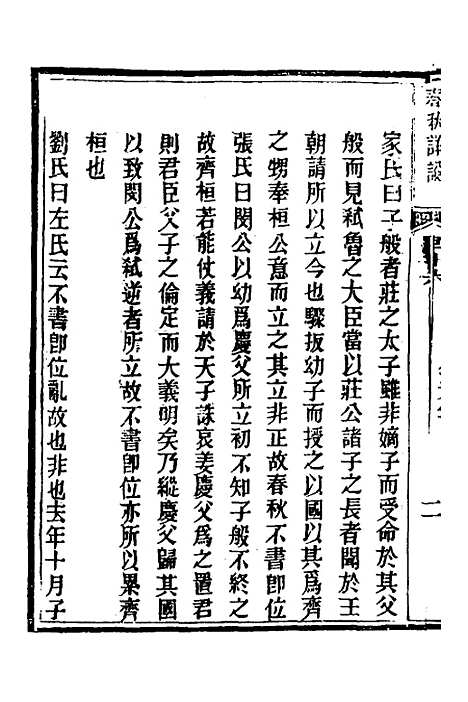 家氏曰子般者莊之太子雖非嫡子而受命於其父
般而見弒魯之大臣當以莊公諸子之長者聞於王
朝請所以立今也驟扳幼子而授之以國以其爲齊
之甥奉桓公意而立之其立非正故春秋不書卽位
張氏曰閔公以幼爲慶父所立初不知子般不終之
故齊桓若能仗義請於天子誅哀姜慶父爲之置君
則君臣父子之倫定而大義明矣乃縱慶父歸其國
以致閔公爲弒逆者所立故不書卽位亦所以累齊
桓也
劉氏曰左氏云不書卽位亂故也非也去年十月子